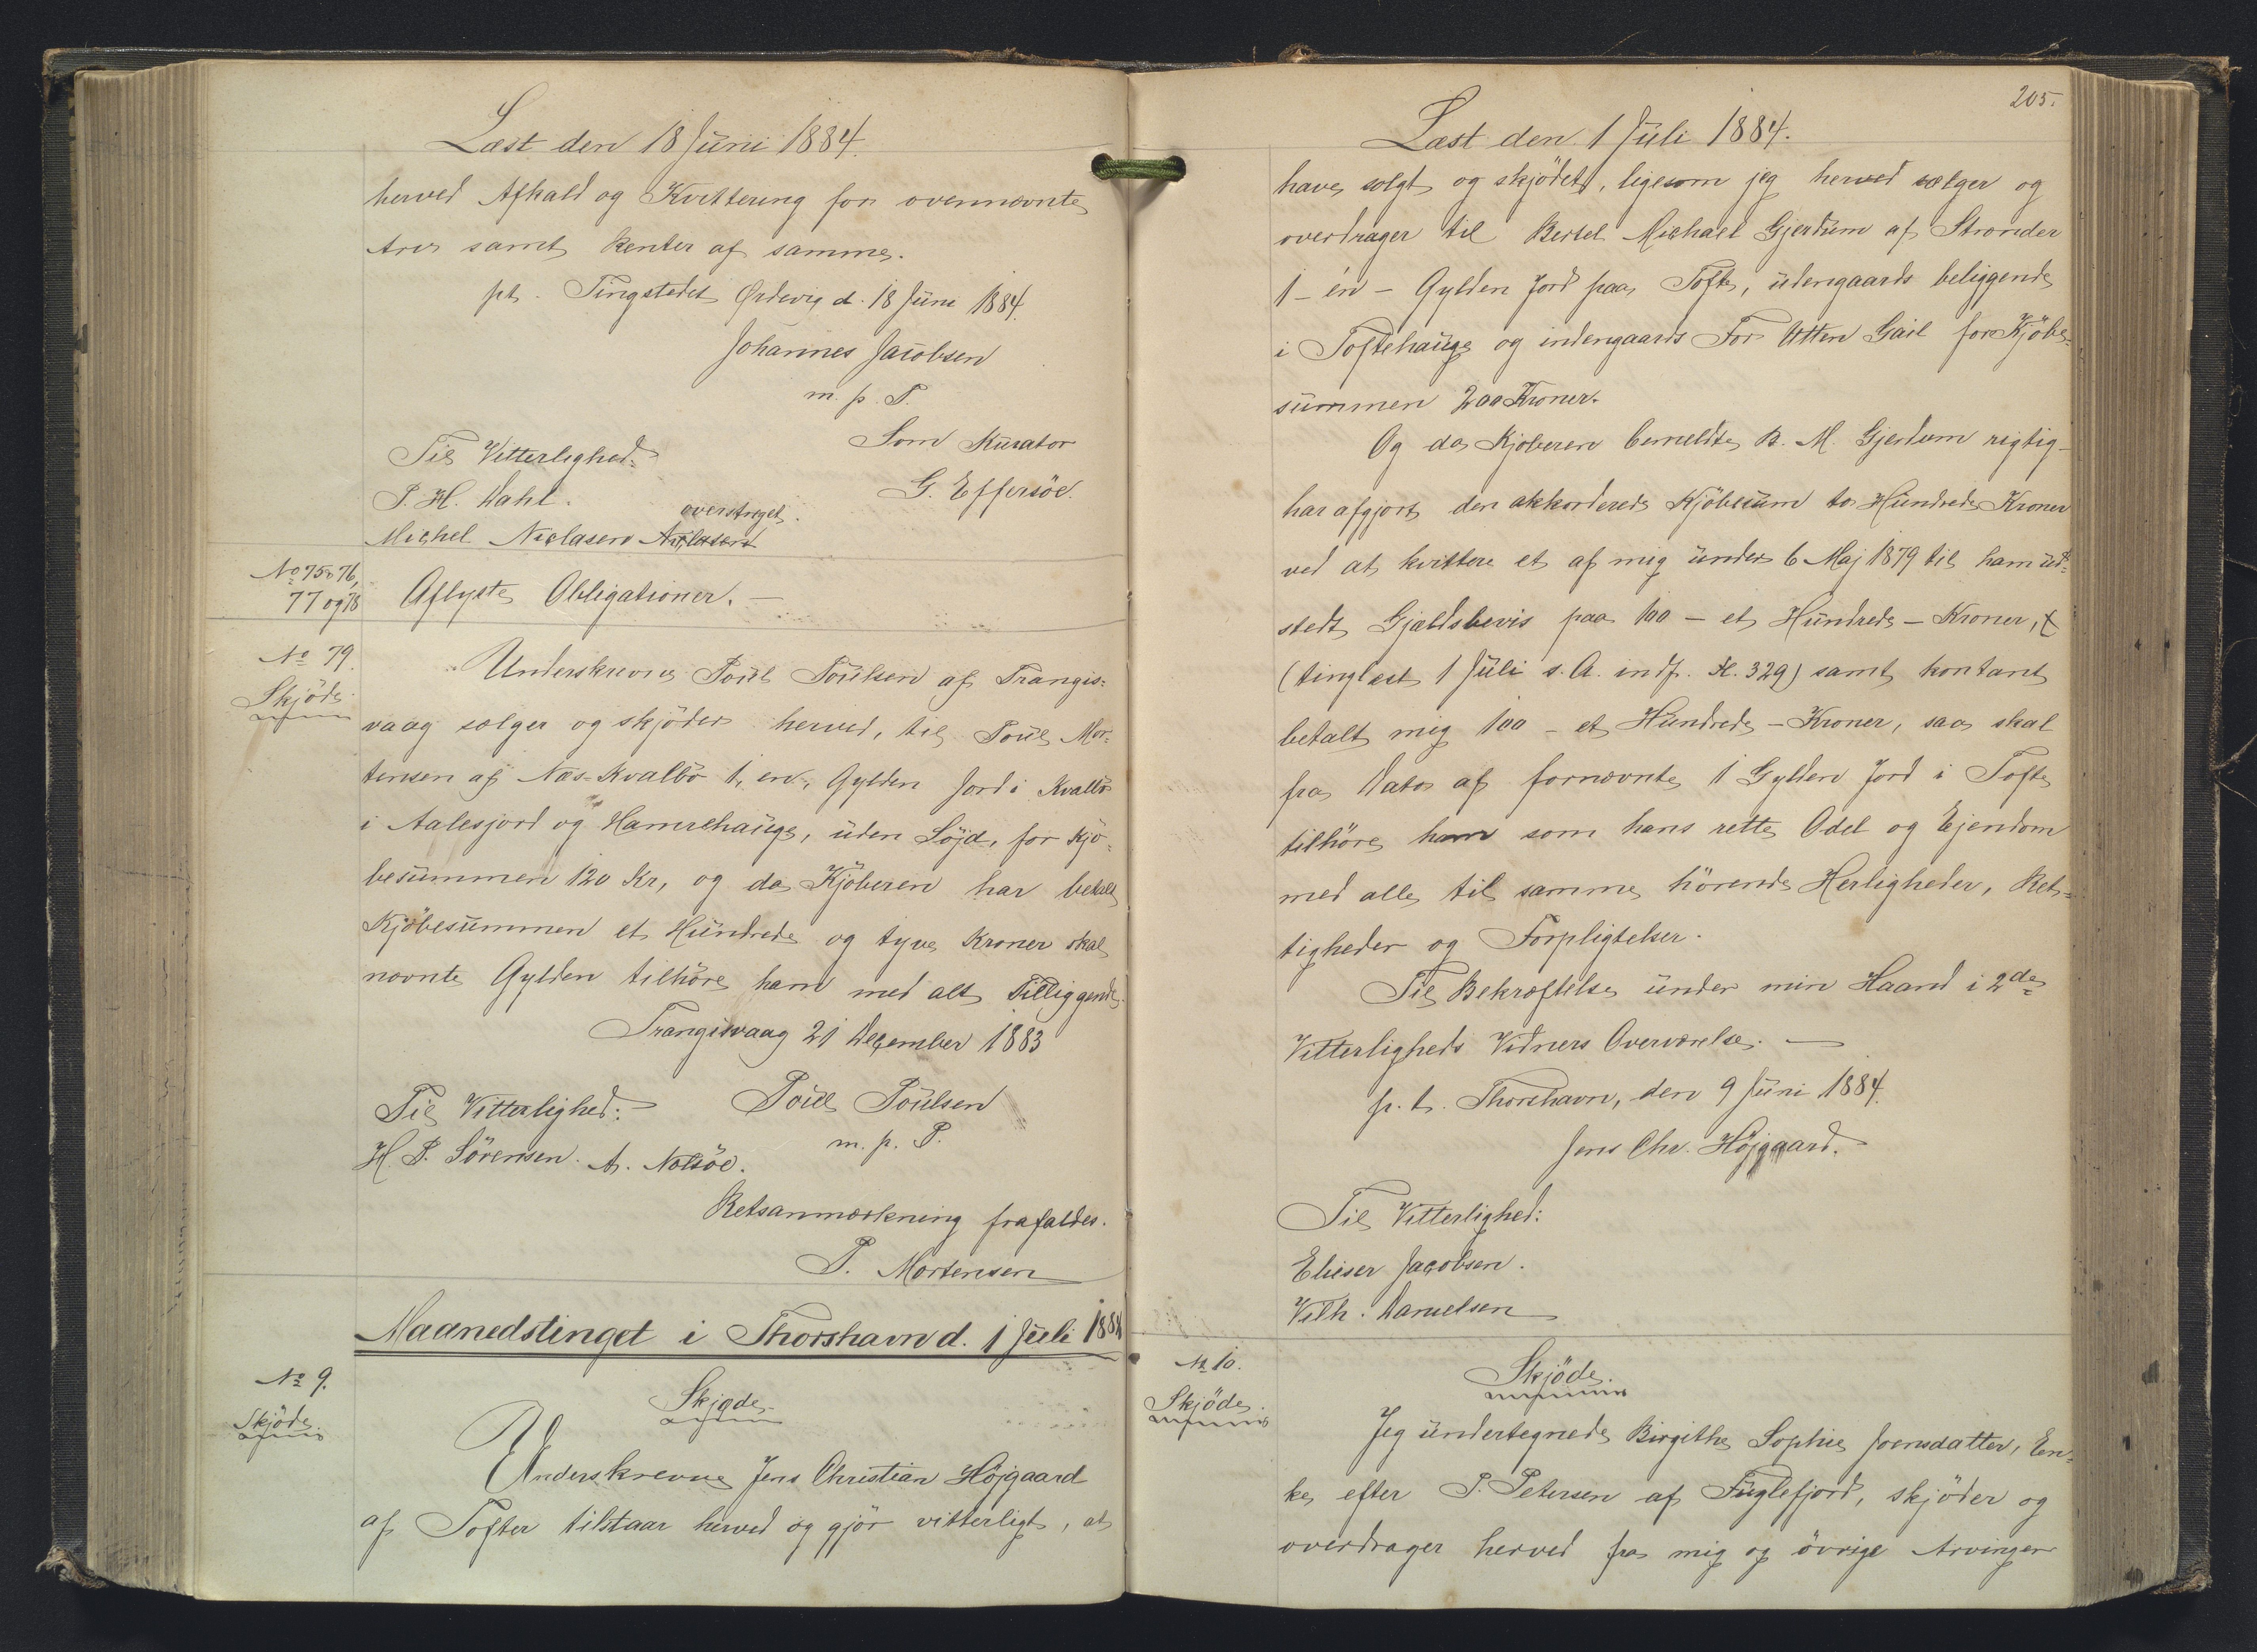 Læst den 18 Juni 1884.
herved Afkald og Kvittering for ovennævnte
Arv samt Renter af samme.
pt. Tingstedet Ørdevig d. 18 Juni 1884.
Johannes Jacobsen
m. p. P.
Som Kurator
G. Effersöe.
Til Vitterlighed:
P. H. Dahl.
overstreget.
Michel Niclasen Niclasen
No 75, 76,
77 og 78
Aflyste Obligationer. —
No 79.
Skjöde.
Underskrevne Poul Poulsen af Trangis-
vaag sælger og skjöder herved, til Poul Mor-
tensen af Næs-Kvalbö 1, en, Gylden Jord i Kvalbö
i Aalesjord og Hamrehauge, uden Söjd, for Kjö-
besummen 120 Kr, og da Kjöberen har betalt
Kjöbesummen et Hundrede og tyve Kroner skal
nævnte Gylden tilhöre ham med alt Tilliggende.
Trangisvaag 21 December 1883
Til Vitterlighed: Poul Poulsen
H. P. Sörensen. A. Nolsöe. m. p. P.
Retsanmærkning frafaldes.
P. Mortensen
Maanedstinget i Thorshavn d. 1 Juli 1884
No 9.
Skjöde.
Skjøde.
Underskrevne Jens Christian Höjgaard
af Tofter tilstaar herved og gjör vitterligt, at
205.
Læst den 1 Juli 1884.
have solgt og skjödet, ligesom jeg herved sælger og
overdrager til Bertel Michael Gjerdum af Strænder
1 - én - Gylden Jord paa Tofte, udengaards beliggende
i Toftehauge og indengaards For Utten Gail for Kjöbe-
summen 200 Kroner.
Og da Kjøberen bemeldte B. M. Gjerdum rigtig
har afgjort den akkorderede Kjöbesum to Hundrede Kroner
ved at kvittere et af mig under 6 Maj 1879 til ham ud-
stedt Gjældsbevis paa 100 - et Hundrede - Kroner,
(tinglæst 1 Juli s. A. indf. H. 329) samt kontant
betalt mig 100 - et Hundrede - Kroner, saa skal
fra Dato af fornævnte 1 Gylden Jord i Tofte
tilhöre ham som hans rette Odel og Ejendom
med alle til samme hörende Herligheder, Ret-
tigheder og Forpligtelser.
Til Bekræftelse under min Haand i 2de
Vitterligheds Vidners Overværelse. —
p. t. Thorshavn, den 9 Juni 1884.
Jens Chr. Höjgaard.
Til Vitterlighed:
Elieser Jacobsen.
Vilh. Danielsen
No 10.
Skjöde.
Skjöde.
Jeg undertegnede Birgithe Sophie Joensdatter, En-
ke efter P. Petersen af Fuglefjord, skjöder og
overdrager herved fra mig og övrige Arvinger